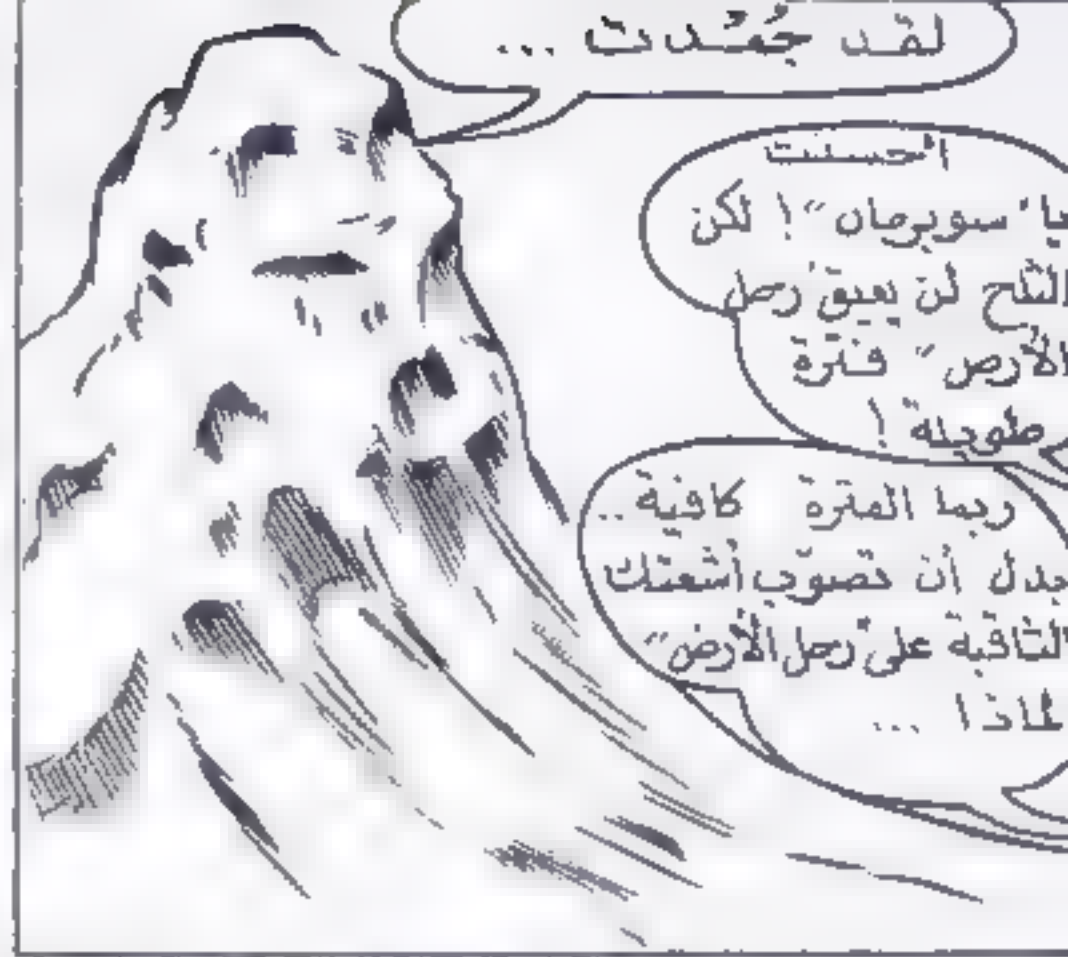 لقد جُمّدت ...
أحسنت
يا "سوبرمان"! لكن
الثلج لن يعيق "رجل
الأرض" فترة
طويلة!
ربما الفترة كافية..
بدل أن تصوّب أشعتك
الثاقبة على "رجل الأرض"
لماذا ...